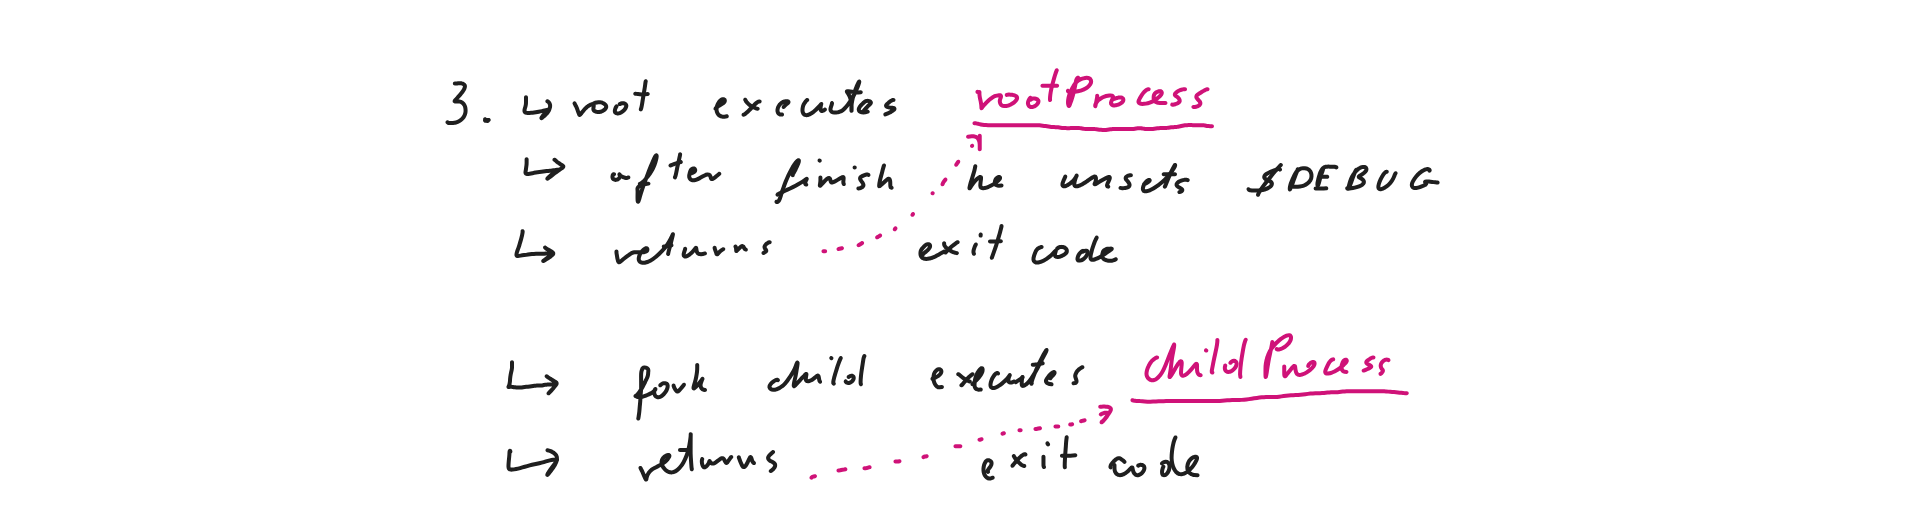 3. ↳ root executes rootProcess
↳ after finish he unsets $DEBUG
↳ returns exit code
↳ fork child executes childProcess
↳ returns exit code